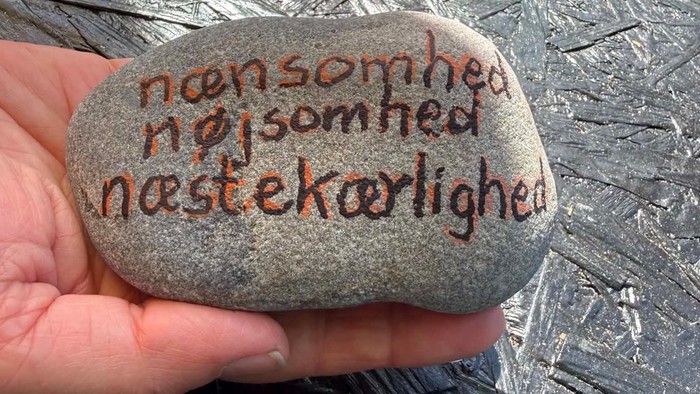 nænsomhed
nøjsomhed
næstekærlighed